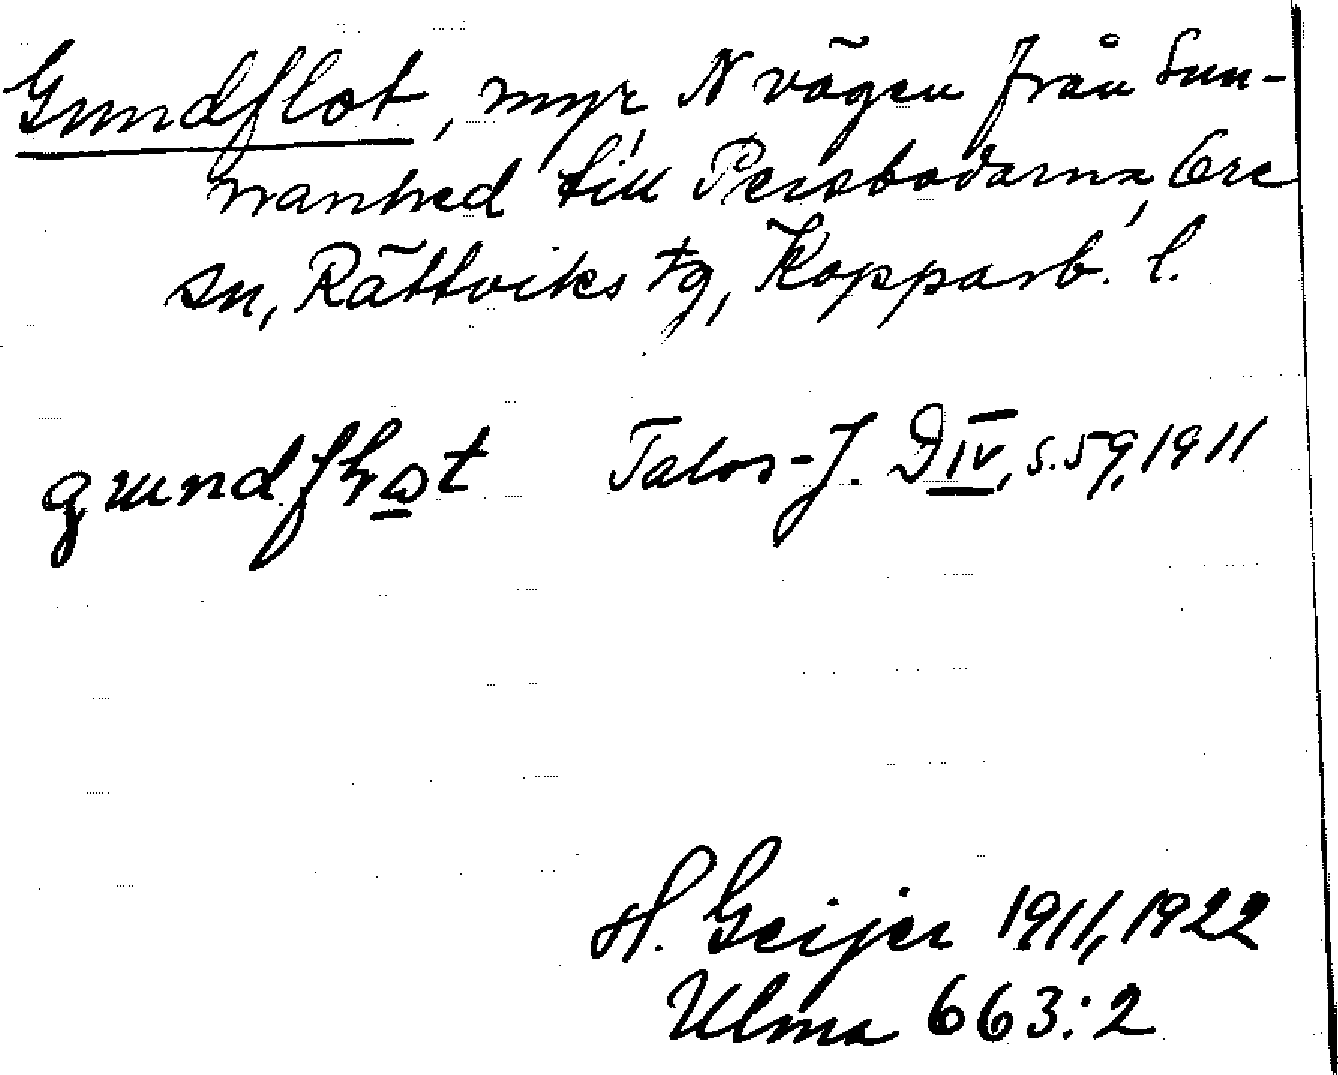 Gundflot, myr N vägen från Sun-
nanhed till Persbodarna, Ore
sn, Rättviks tg, Kopparb. l.
gundflωt Talos-J. D IV, s. 59, 1911
H. Geijer 1911, 1922
Ulma 663:2